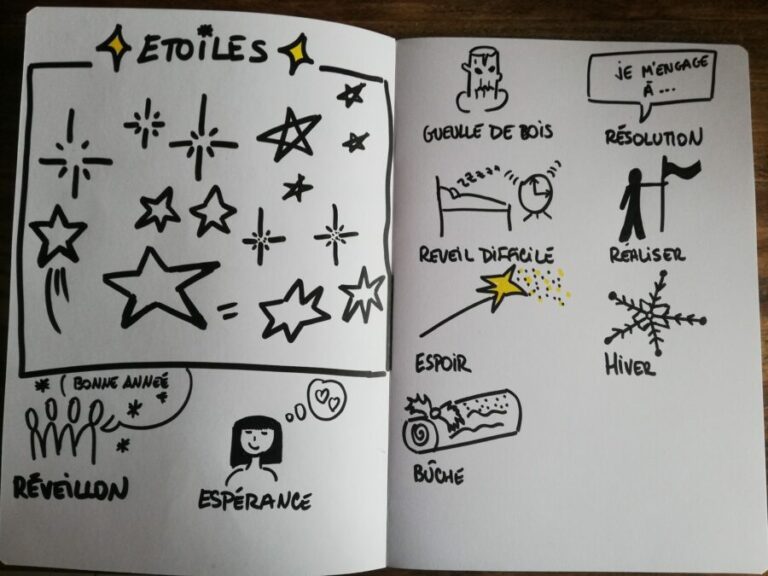 ETOÏLES
BONNE ANNEÉ
RÉVEILLON
ESPÉRANCE
GUEULLE DE BOIS
JE M'ENGAGE
À ...
RÉSOLUTION
ZZZZZ
REVEIL DIFFICILE
RÉALISER
ESPOIR
HIVER
BÛCHE